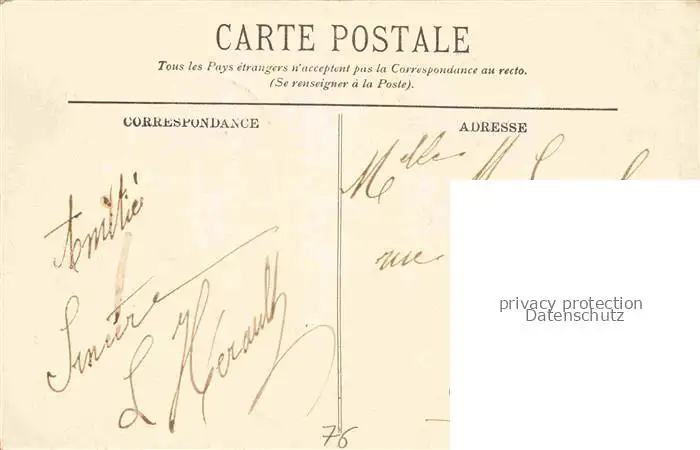 CARTE POSTALE
Tous les Pays étrangers n'acceptent pas la Correspondance au recto.
(Se renseigner à la Poste).
CORRESPONDANCE
ADRESSE
Melle M
Amitié
rue
Sincère
L Herault
privacy protection
Datenschutz
76